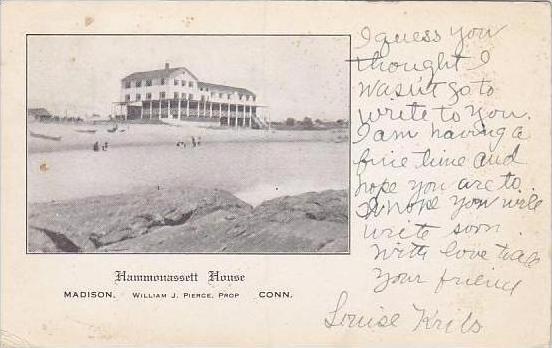 I guess you
thought I
wasn't go to
write to you.
I am having a
fine time and
hope you are to.
I hope you will
write soon.
With love to all
Your friend
Louise
Hammonassett House
MADISON. WILLIAM J. PIERCE, PROP CONN.